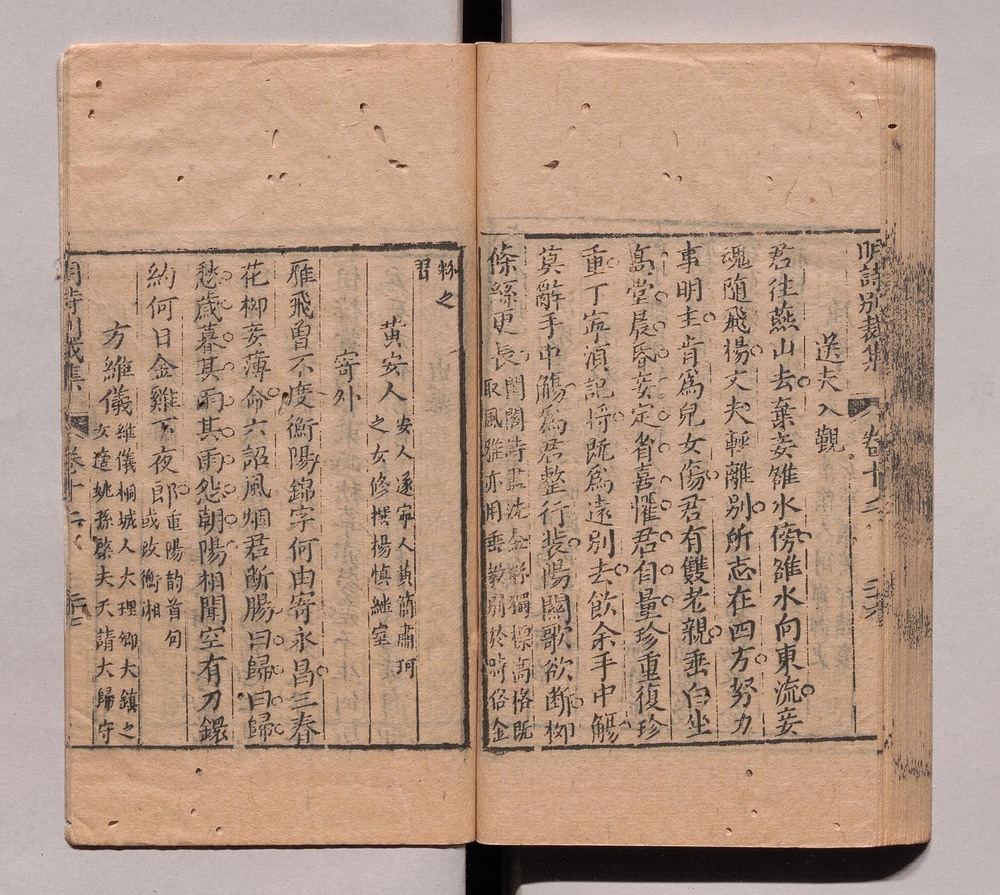 明詩別裁集 卷十二 三六
送夫入覲
君往燕山去棄妾雒水傍雒水向東流妾
魂隨飛揚丈夫輕離別所志在四方努力
事明主肯為兒女傷君有雙老親垂白坐
高堂晨昏妾定省喜懼君自量珍重復珍
重丁寜須記将既為遠別去飲余手中觴
莫辭手中觴為君整行裝陽關歌欲断柳
條絲更長閨閣詩
取風雅亦用垂教別於時俗金
粉之
習
黃安人安人遂寜人黃簡肅珂
之女修撰楊慎繼室
寄外
雁飛曾不度衡陽錦字何由寄永昌三春
花柳妾薄命六詔風煙君斷腸曰歸曰歸
愁歲暮其雨其雨怨朝陽相聞空有刀鐶
約何日金雞下夜郎重陽韵首句
或改衡湘
方維儀維儀桐城人大理卿大鎮之
女適姚孫棨夫夭請大歸守
明詩別裁集 卷十二